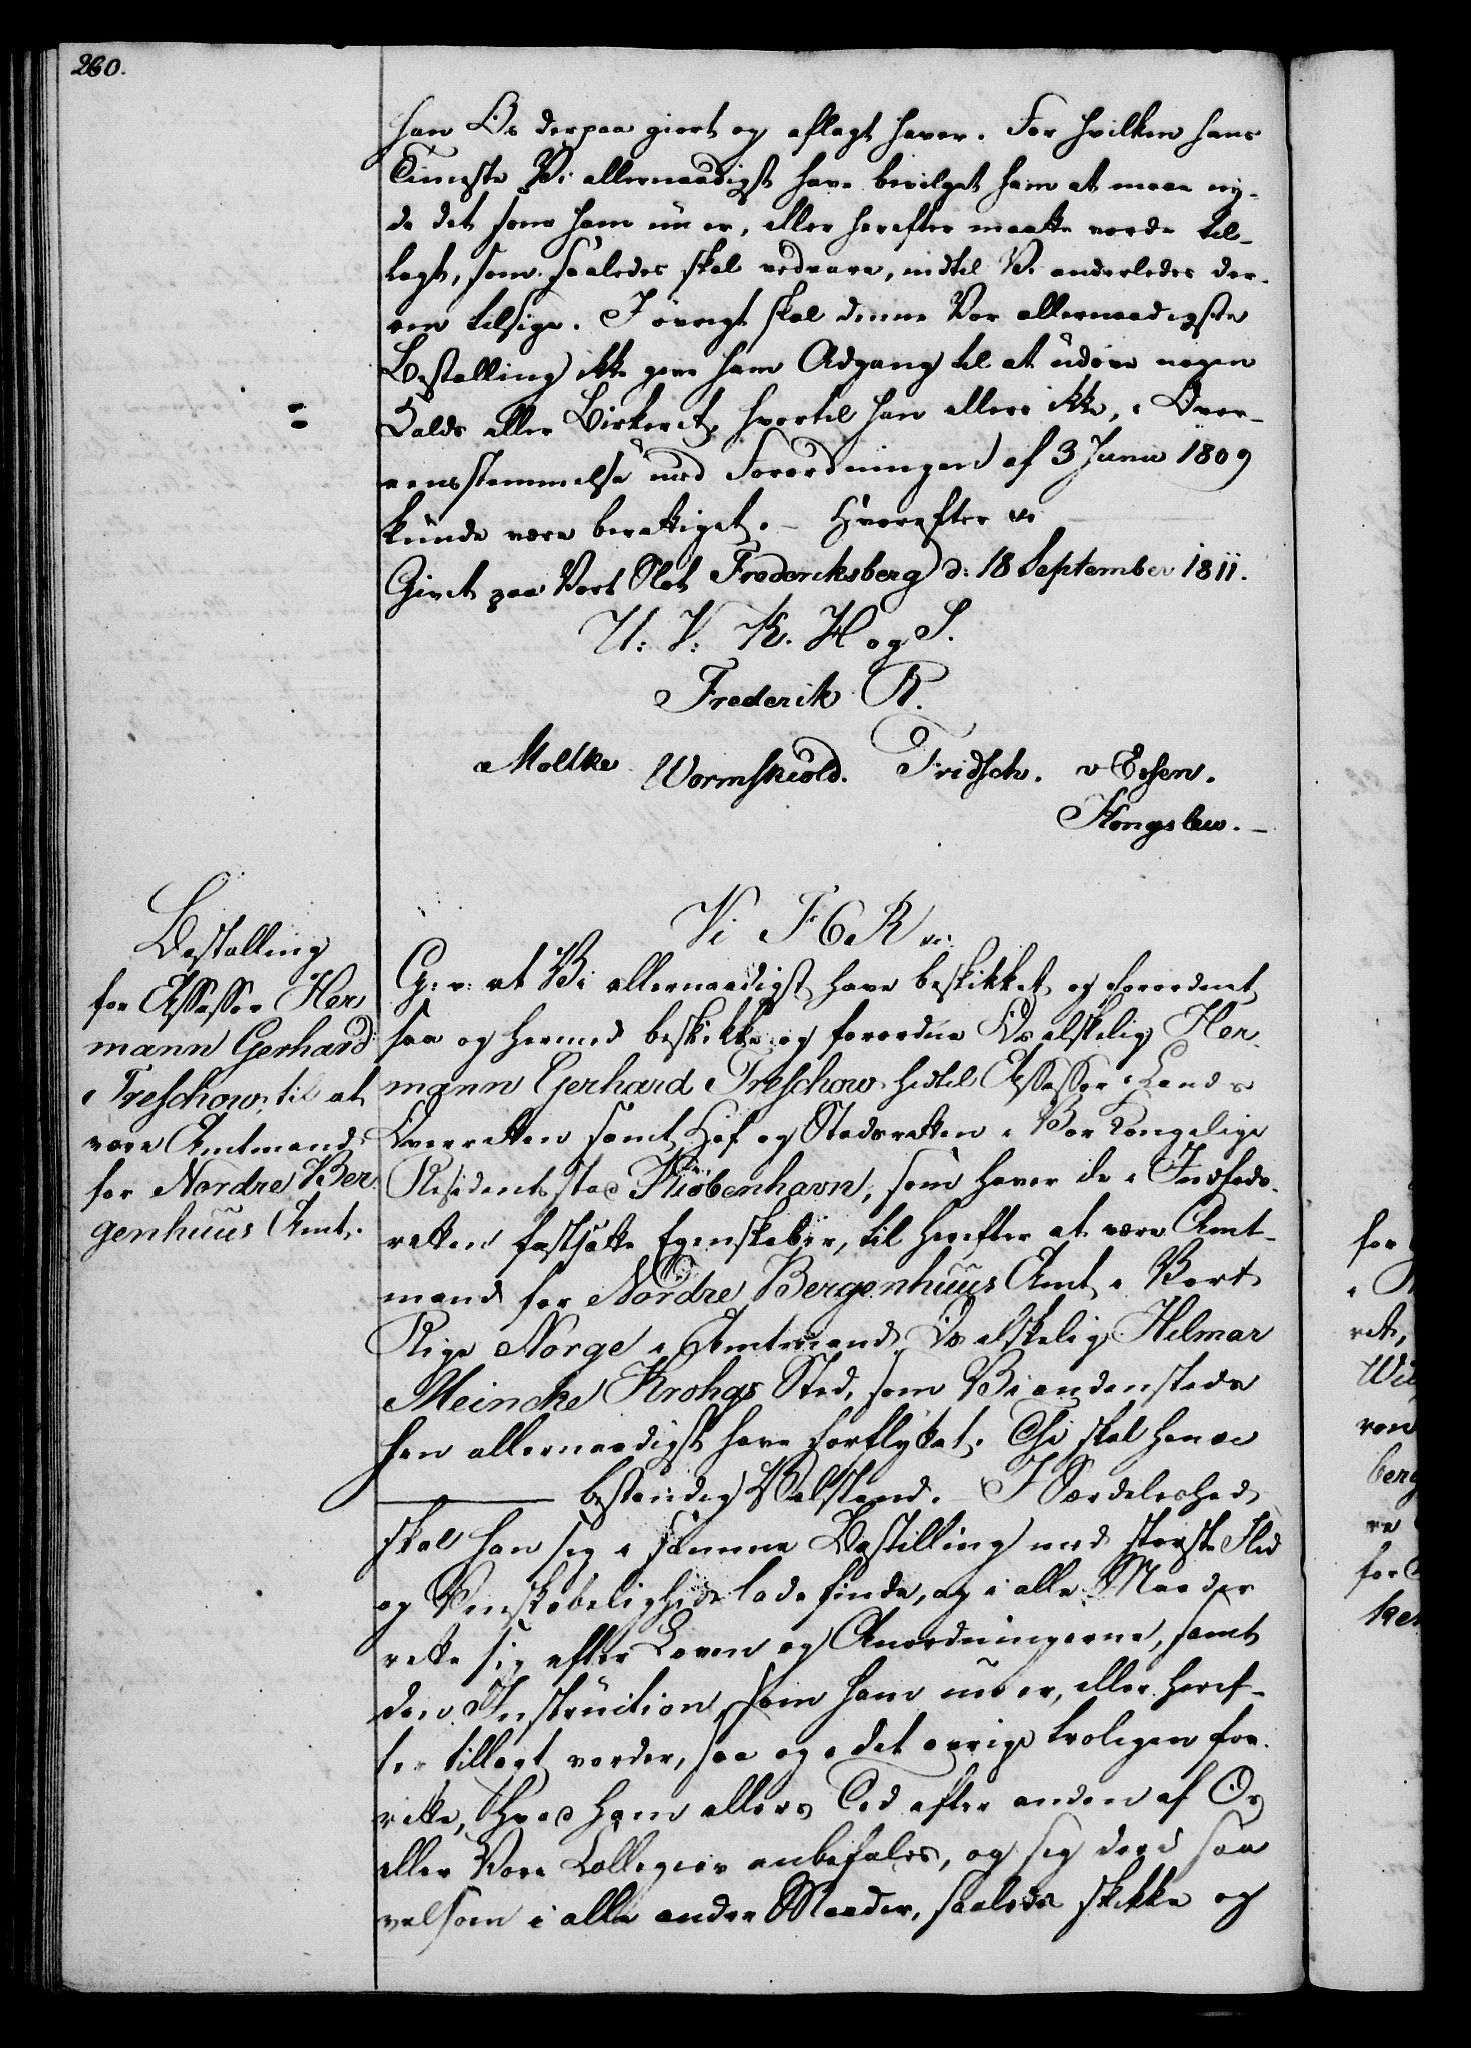 260.
han Os derpaa giort og aflagt haver. For hvilken hans
Tieneste Vi allernaadigst have bevilget ham at maae ny-
de det som ham nu er, eller herefter maatte vorde til-
lagt, som saaledes skal vedvare, indtil Vi anderledes der-
om tilsige. I övrigt skal denne Vor allernaadigste
Bestalling ikke give ham Adgang til at udöve nogen
Halds eller Birkeret, hvortil han ellers ikke, i Over-
eensstemmelse med Forordningen af 3 Junii 1809
kunde være berettiget. – Hvorefter ꝛc
Givet paa Vort Slot Frederiksberg d: 18 September 1811.
U: V: K. H og S.
Frederik R.
Moltke Wormskiold. Fridsch. v Essen.
Kongslew. –
Bestalling
for Assessor Her
mann Gerhard
Treschow, til at
være Amtmand
for Nordre Ber
genhuus Amt.
Vi F 6 R ꝛc:
G: v: at Vi allernaadigst have beskikket og forordnet
saa og hermed beskikke og forordne Os elskelig Her-
mann Gerhard Treschow hidtil Assessor i Lands
Overretten samt Hof og Stadsretten i Vor Kongelige
Residentsstad Kiøbenhavn, som haver de i Indföds-
retten fastsatte Egenskaber, til herefter at være Amt-
mand for Nordre Bergenhuus Amt i Vort
Rige Norge i Amtmand Os elskelig Hilmar
Meincke Krohgs Sted, som Vi andensteds
hen allernaadigst have forflyttet. Thi skal han ꝛc
bestandig Velstand. I Særdeleshed
skal han sig i samme Bestilling med störste Flid
og Vinskibelighed lade finde, og i alle Maader
rette sig efter Loven og Anordningerne, samt
den Instruction, som ham nu er, eller heref-
ter tillagt vorder, saa og i det övrige troligen for-
rette, hvad ham ellers Tid efter anden af Os
eller Vore Collegier anbefales, og sig deri saa
velsom i alle andre Maader, saaledes skikke og